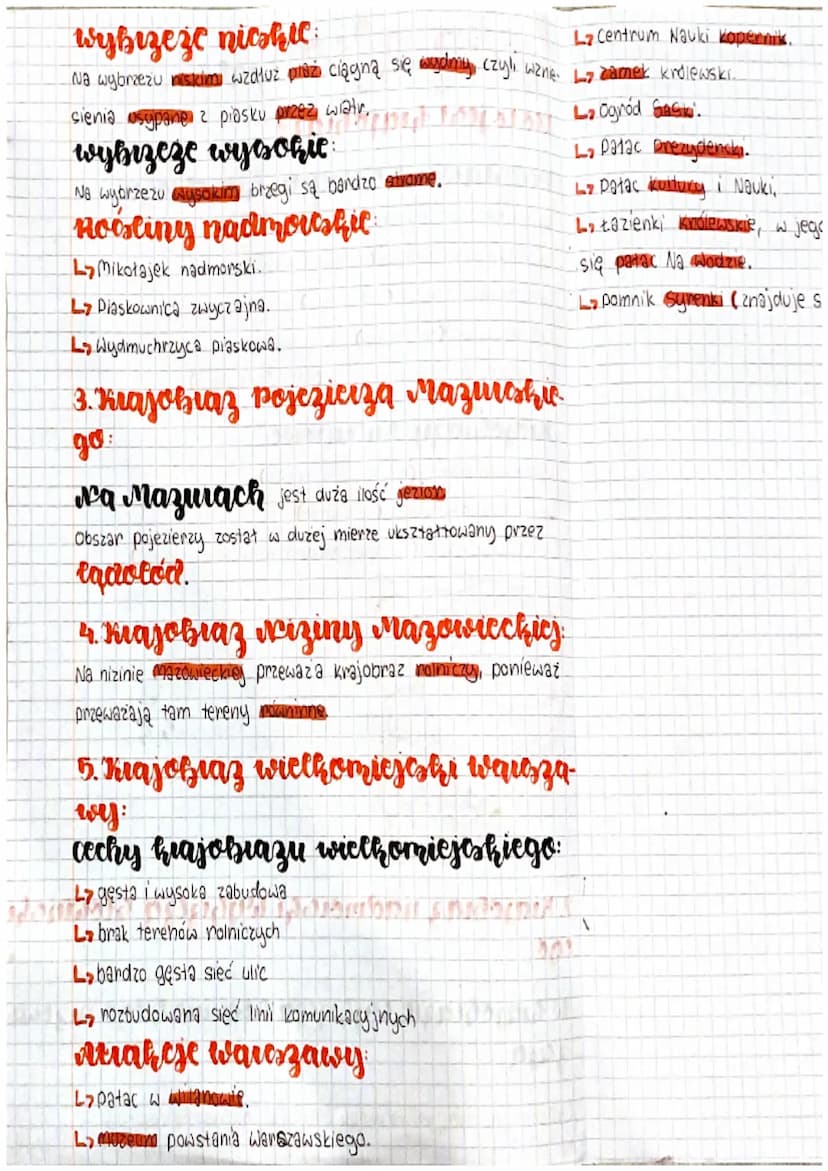 wybrzeże niskie:
Na wybrzeżu niskim wzdłuż plaż ciągną się wydmy czyli wznie-
sienia usypane z piasku przez wiatr.
wybrzeże wysokie:
Na wybrzeżu wysokim brzegi są bardzo strome.
Rośliny nadmorskie:
↳ Mikołajek nadmorski.
↳ Piaskownica zwyczajna.
↳ Wydmuchrzyca piaskowa.
3. Krajobraz Pojezierza Mazurskie-
go:
Na Mazurach jest duża ilość jezior.
Obszar pojezierzy został w dużej mierze ukształtowany przez
lądolód.
4. Krajobraz Niziny Mazowieckiej:
Na nizinie mazowieckiej przeważa krajobraz rolniczy, ponieważ
przeważają tam tereny równinne.
5. Krajobraz wielkomiejski Warsza-
wy:
Cechy krajobrazu wielkomiejskiego:
↳ gęsta i wysoka zabudowa
↳ brak terenów rolniczych
↳ bardzo gęsta sieć ulic
↳ rozbudowana sięć linii komunikacyjnych
Atrakcje Warszawy:
↳ pałac w Wilanowie.
↳ Muzeum powstania Warszawskiego.
↳ Centrum Nauki Kopernik.
↳ Zamek królewski.
↳ Ogród Saski.
↳ Pałac Prezydencki.
↳ Pałac kultury i Nauki,
↳ Łazienki królewskie, w jego
się pałac Na Wodzie.
↳ pomnik Syrenki (znajduje s